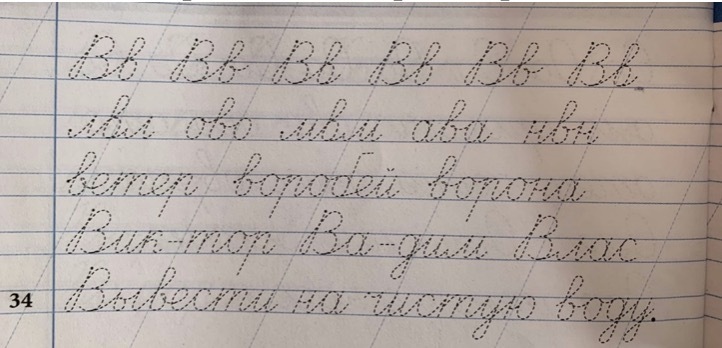 Вв Вв Вв Вв Вв Вв
лвл ово мвм ава нвн
ветер воробей ворона
Вик-тор Ва-дим Влас
34 Вывести на чистую воду.